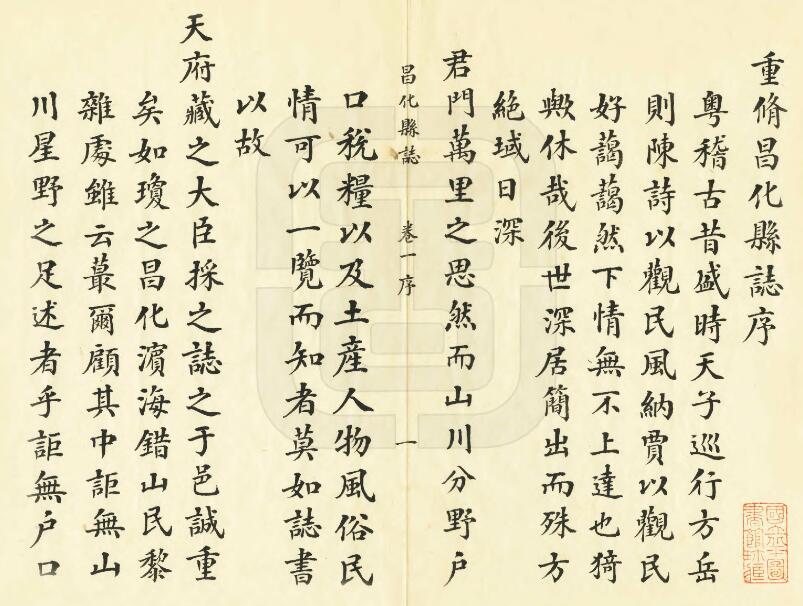 重脩昌化縣誌序
粵稽古昔盛時天子巡行方岳
則陳詩以觀民風納賈以觀民
好藹藹然下情無不上達也猗
歟休哉後世深居簡出而殊方
絕域日深
君門萬里之思然而山川分野戶
昌化縣誌 卷一序 一
口稅糧以及土產人物風俗民
情可以一覽而知者莫如誌書
以故
天府藏之大臣採之誌之于邑誠重
矣如瓊之昌化濱海錯山民黎
雜處雖云蕞爾顧其中詎無山
川星野之足述者乎詎無戶口